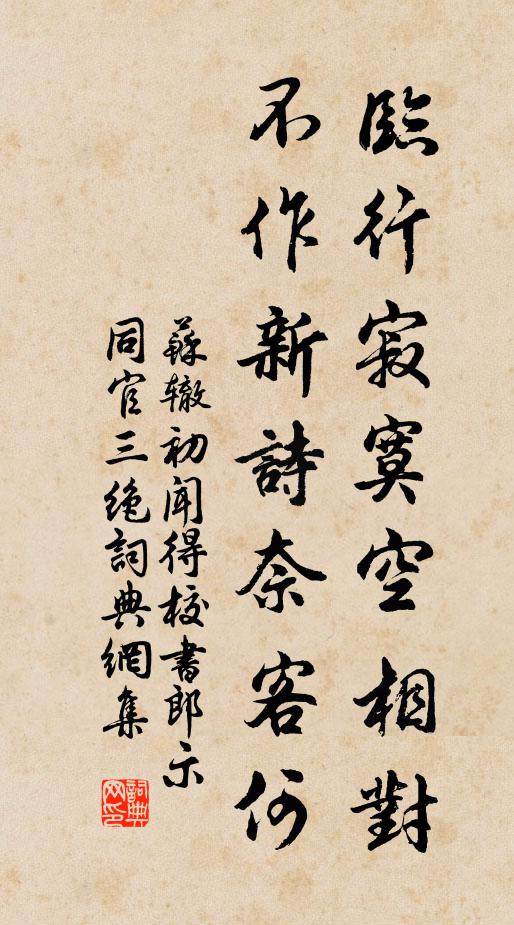 臨行寂寞空相對
不作新詩奈客何
蘇辙初闻得校書郎示
同官三绝詞典網集
詞典
网印